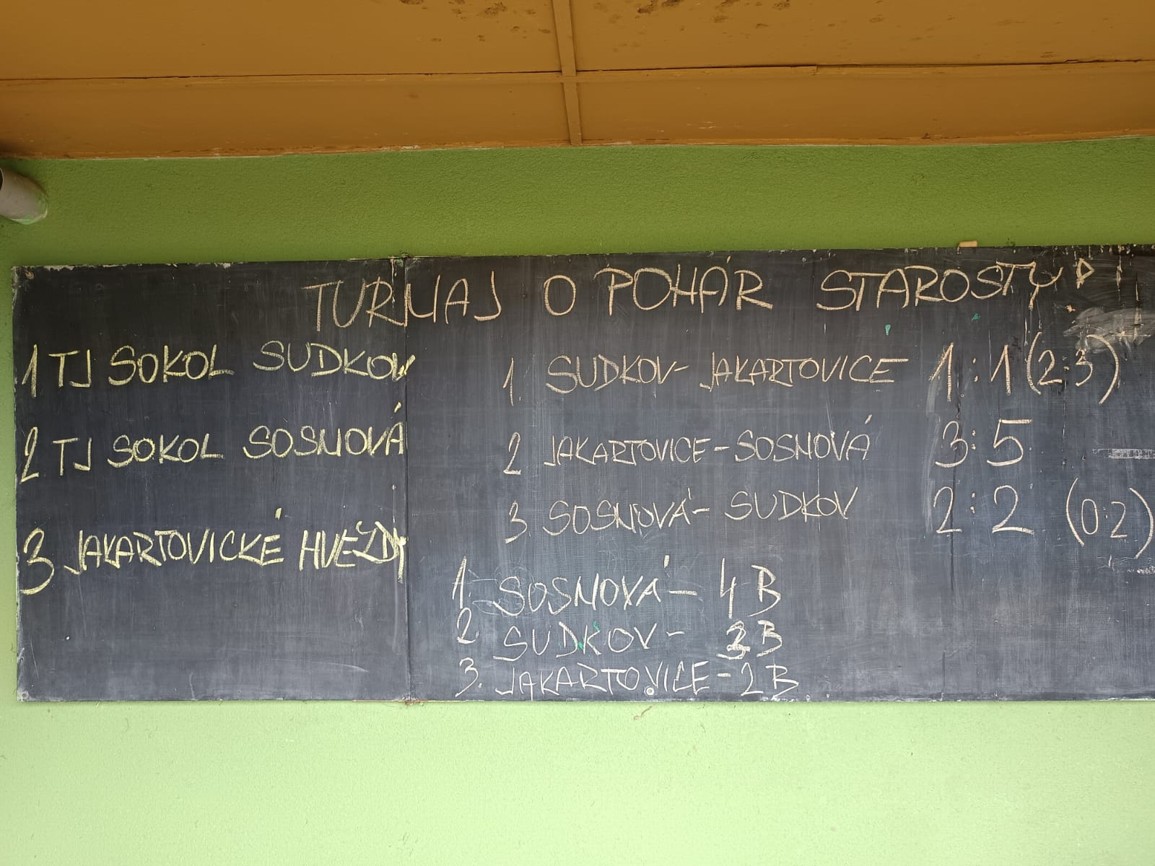 TURNAJ O POHÁR STAROSTY
1 TJ SOKOL SUDKOV
2 TJ SOKOL SOSNOVÁ
3 JAKARTOVICKÉ HVĚZDY
1. SUDKOV- JAKARTOVICE 1:1 (2:3)
2 JAKARTOVICE-SOSNOVÁ 3:5
3 SOSNOVÁ- SUDKOV 2:2 (0:2)
1. SOSNOVÁ- 4B
2. SUDKOV- 3B
3. JAKARTOVICE-2B